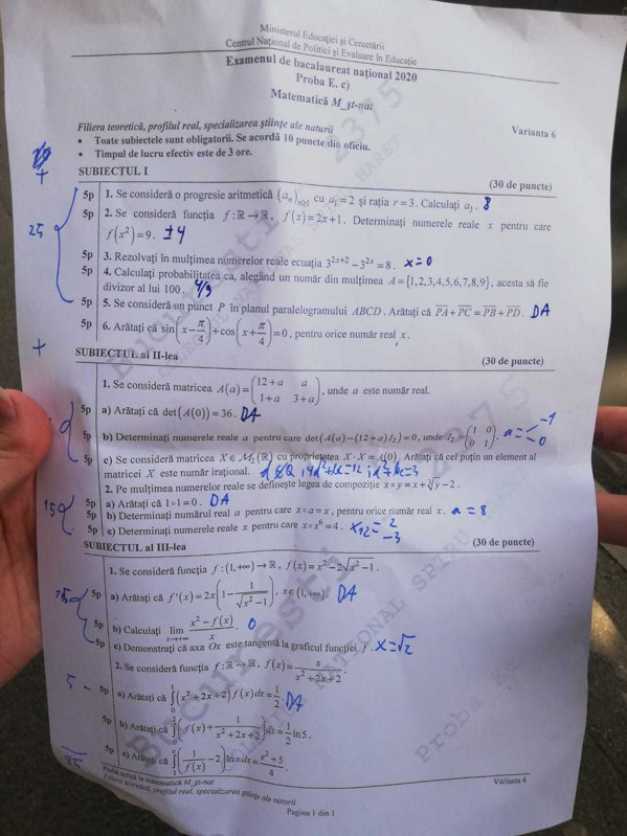 Ministerul Educației și Cercetării
Centrul Național de Politici și Evaluare în Educație
Examenul de bacalaureat național 2020
Proba E. c)
Matematică M_șt-nat
Varianta 6
Filiera teoretică, profilul real, specializarea științe ale naturii
• Toate subiectele sunt obligatorii. Se acordă 10 puncte din oficiu.
• Timpul de lucru efectiv este de 3 ore.
SUBIECTUL I (30 de puncte)
5p 1. Se consideră o progresie aritmetică (aₙ)ₙ≥1 cu a₁ = 2 și rația r = 3. Calculați a₃. 8
5p 2. Se consideră funcția f : ℝ → ℝ, f(x) = 2x + 1. Determinați numerele reale x pentru care
f(x²) = 9. ±4
25
5p 3. Rezolvați în mulțimea numerelor reale ecuația 3²ˣ⁺² − 3²ˣ = 8. x=0
5p 4. Calculați probabilitatea ca, alegând un număr din mulțimea A = {1,2,3,4,5,6,7,8,9}, acesta să fie
divizor al lui 100. 4/9
5p 5. Se consideră un punct P în planul paralelogramului ABCD. Arătați că PA + PC = PB + PD. DA
5p 6. Arătați că sin(x − π/4) + cos(x + π/4) = 0, pentru orice număr real x.
SUBIECTUL al II-lea (30 de puncte)
1. Se consideră matricea A(a) = (12+a a
1+a 3+a), unde a este număr real.
5p a) Arătați că det(A(0)) = 36. DA
5p b) Determinați numerele reale a pentru care det(A(a) − (12+a)I₂) = 0, unde I₂ = (1 0
0 1). a = -1 0
5p c) Se consideră matricea X ∈ M₂(ℝ) cu proprietatea X · X = A(0). Arătați că cel puțin un element al
matricei X este număr irațional.
2. Pe mulțimea numerelor reale se definește legea de compoziție x∘y = x + ∛y − 2.
15
5p a) Arătați că 1∘1 = 0. DA
5p b) Determinați numărul real a pentru care x∘a = x, pentru orice număr real x. a = 8
5p c) Determinați numerele reale x pentru care x∘x⁶ = 4. x12 = 2 -3
SUBIECTUL al III-lea (30 de puncte)
1. Se consideră funcția f : (1,+∞) → ℝ, f(x) = x² − 2√(x² − 1).
5p a) Arătați că f'(x) = 2x(1 − 1/√(x² − 1)), x ∈ (1,+∞). DA
5p b) Calculați lim x→+∞ (x² − f(x))/x. 0
5p c) Demonstrați că axa Ox este tangentă la graficul funcției f. x=√2
2. Se consideră funcția f : ℝ → ℝ, f(x) = x/(x² + 2x + 2).
5 -
5p a) Arătați că ∫₀¹(x² + 2x + 2) f(x)dx = 1/2. DA
5p b) Arătați că ∫(f(x) + 1/(x² + 2x + 2))dx = 1/2 ln 5.
5p c) Arătați că ∫₁ᵉ(1/f(x) − 2) ln x dx = (e² + 5)/4.
Probă scrisă la matematică M_șt-nat
Varianta 6
Filiera teoretică, profilul real, specializarea științe ale naturii
Pagina 1 din 1